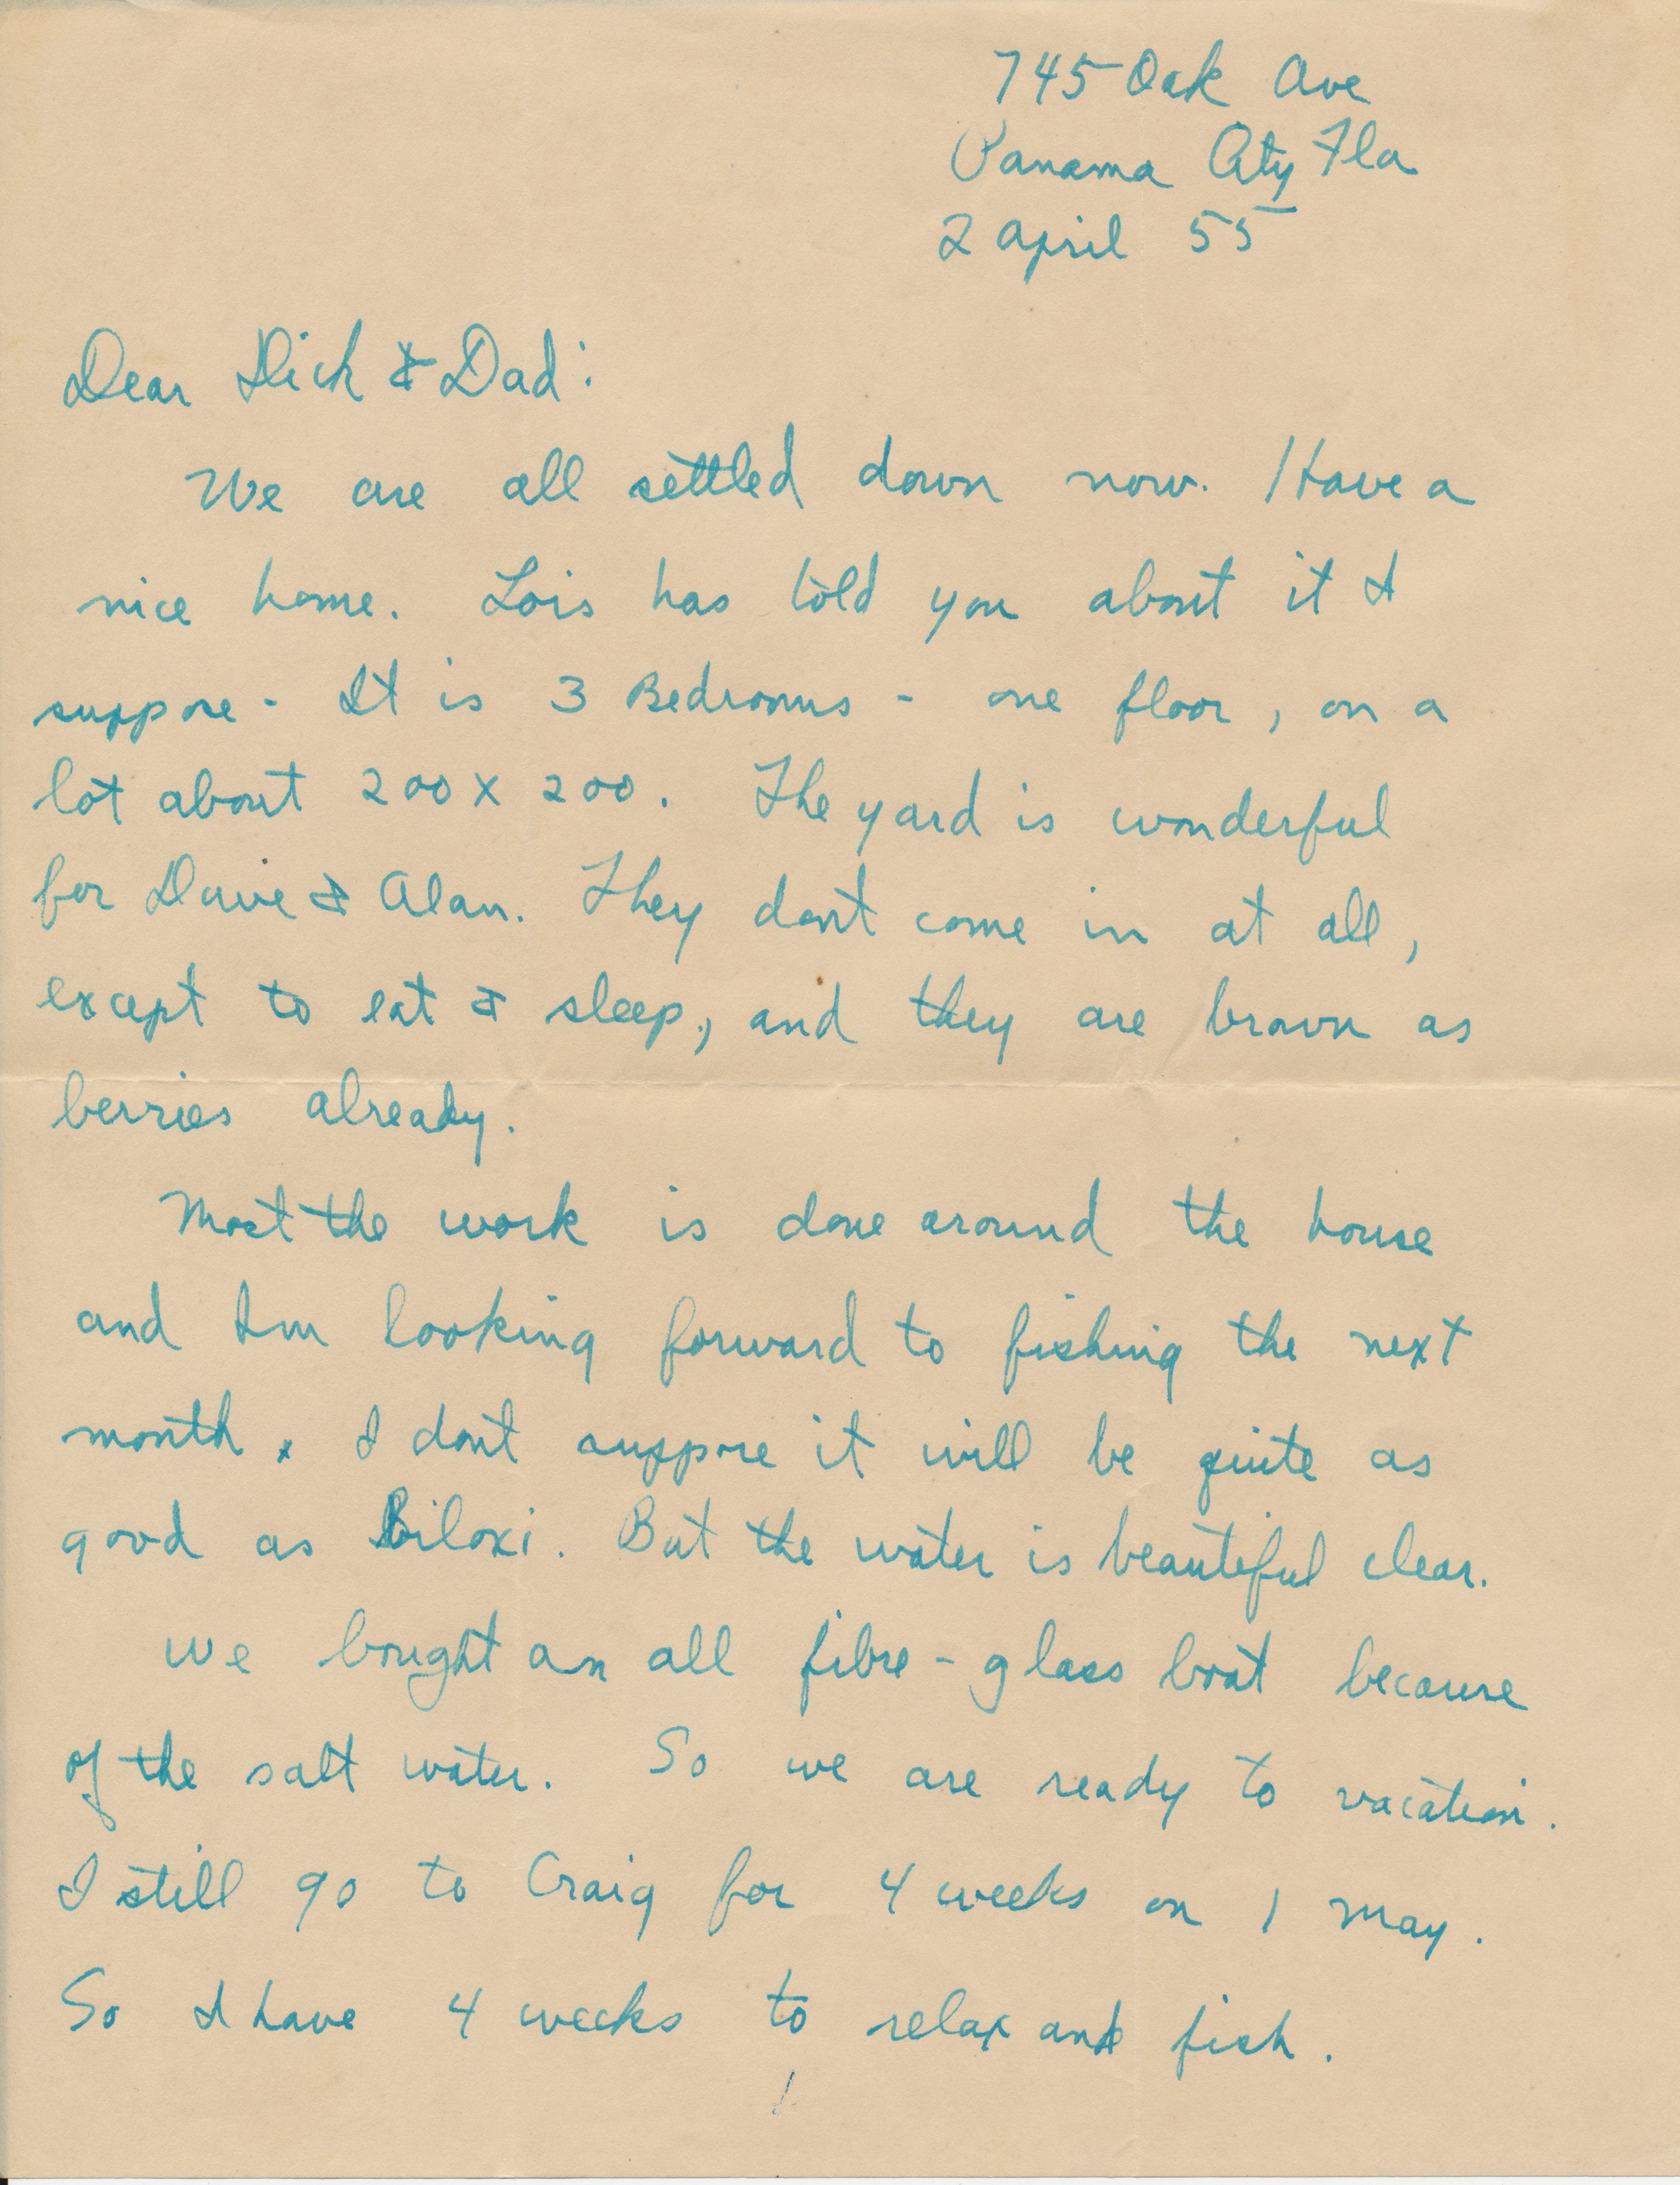 745 Oak Ave
Panama City Fla
2 April 55
Dear Dick & Dad:
We are all settled down now. Have a
nice home. Lois has told you about it I
suppose. It is 3 Bedrooms - one floor, on a
lot about 200 x 200. The yard is wonderful
for Davie & Alan. They dont come in at all,
except to eat & sleep, and they are brown as
berries already.
Most the work is done around the house
and Im looking forward to fishing the next
month. I dont suppose it will be quite as
good as Biloxi. But the water is beautiful clear.
We bought an all fibre-glass boat because
of the salt water. So we are ready to vacation.
I still go to Craig for 4 weeks on 1 May.
So I have 4 weeks to relax and fish.